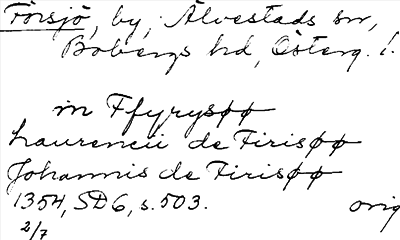 Förisjö, by, Älvestads sn,
Bobergs hd, Österg. l.
in Ffyryspø
Laurencii de Firisøø
Johannis de Firisøø
1354, SD6, s. 503. orig
2/7